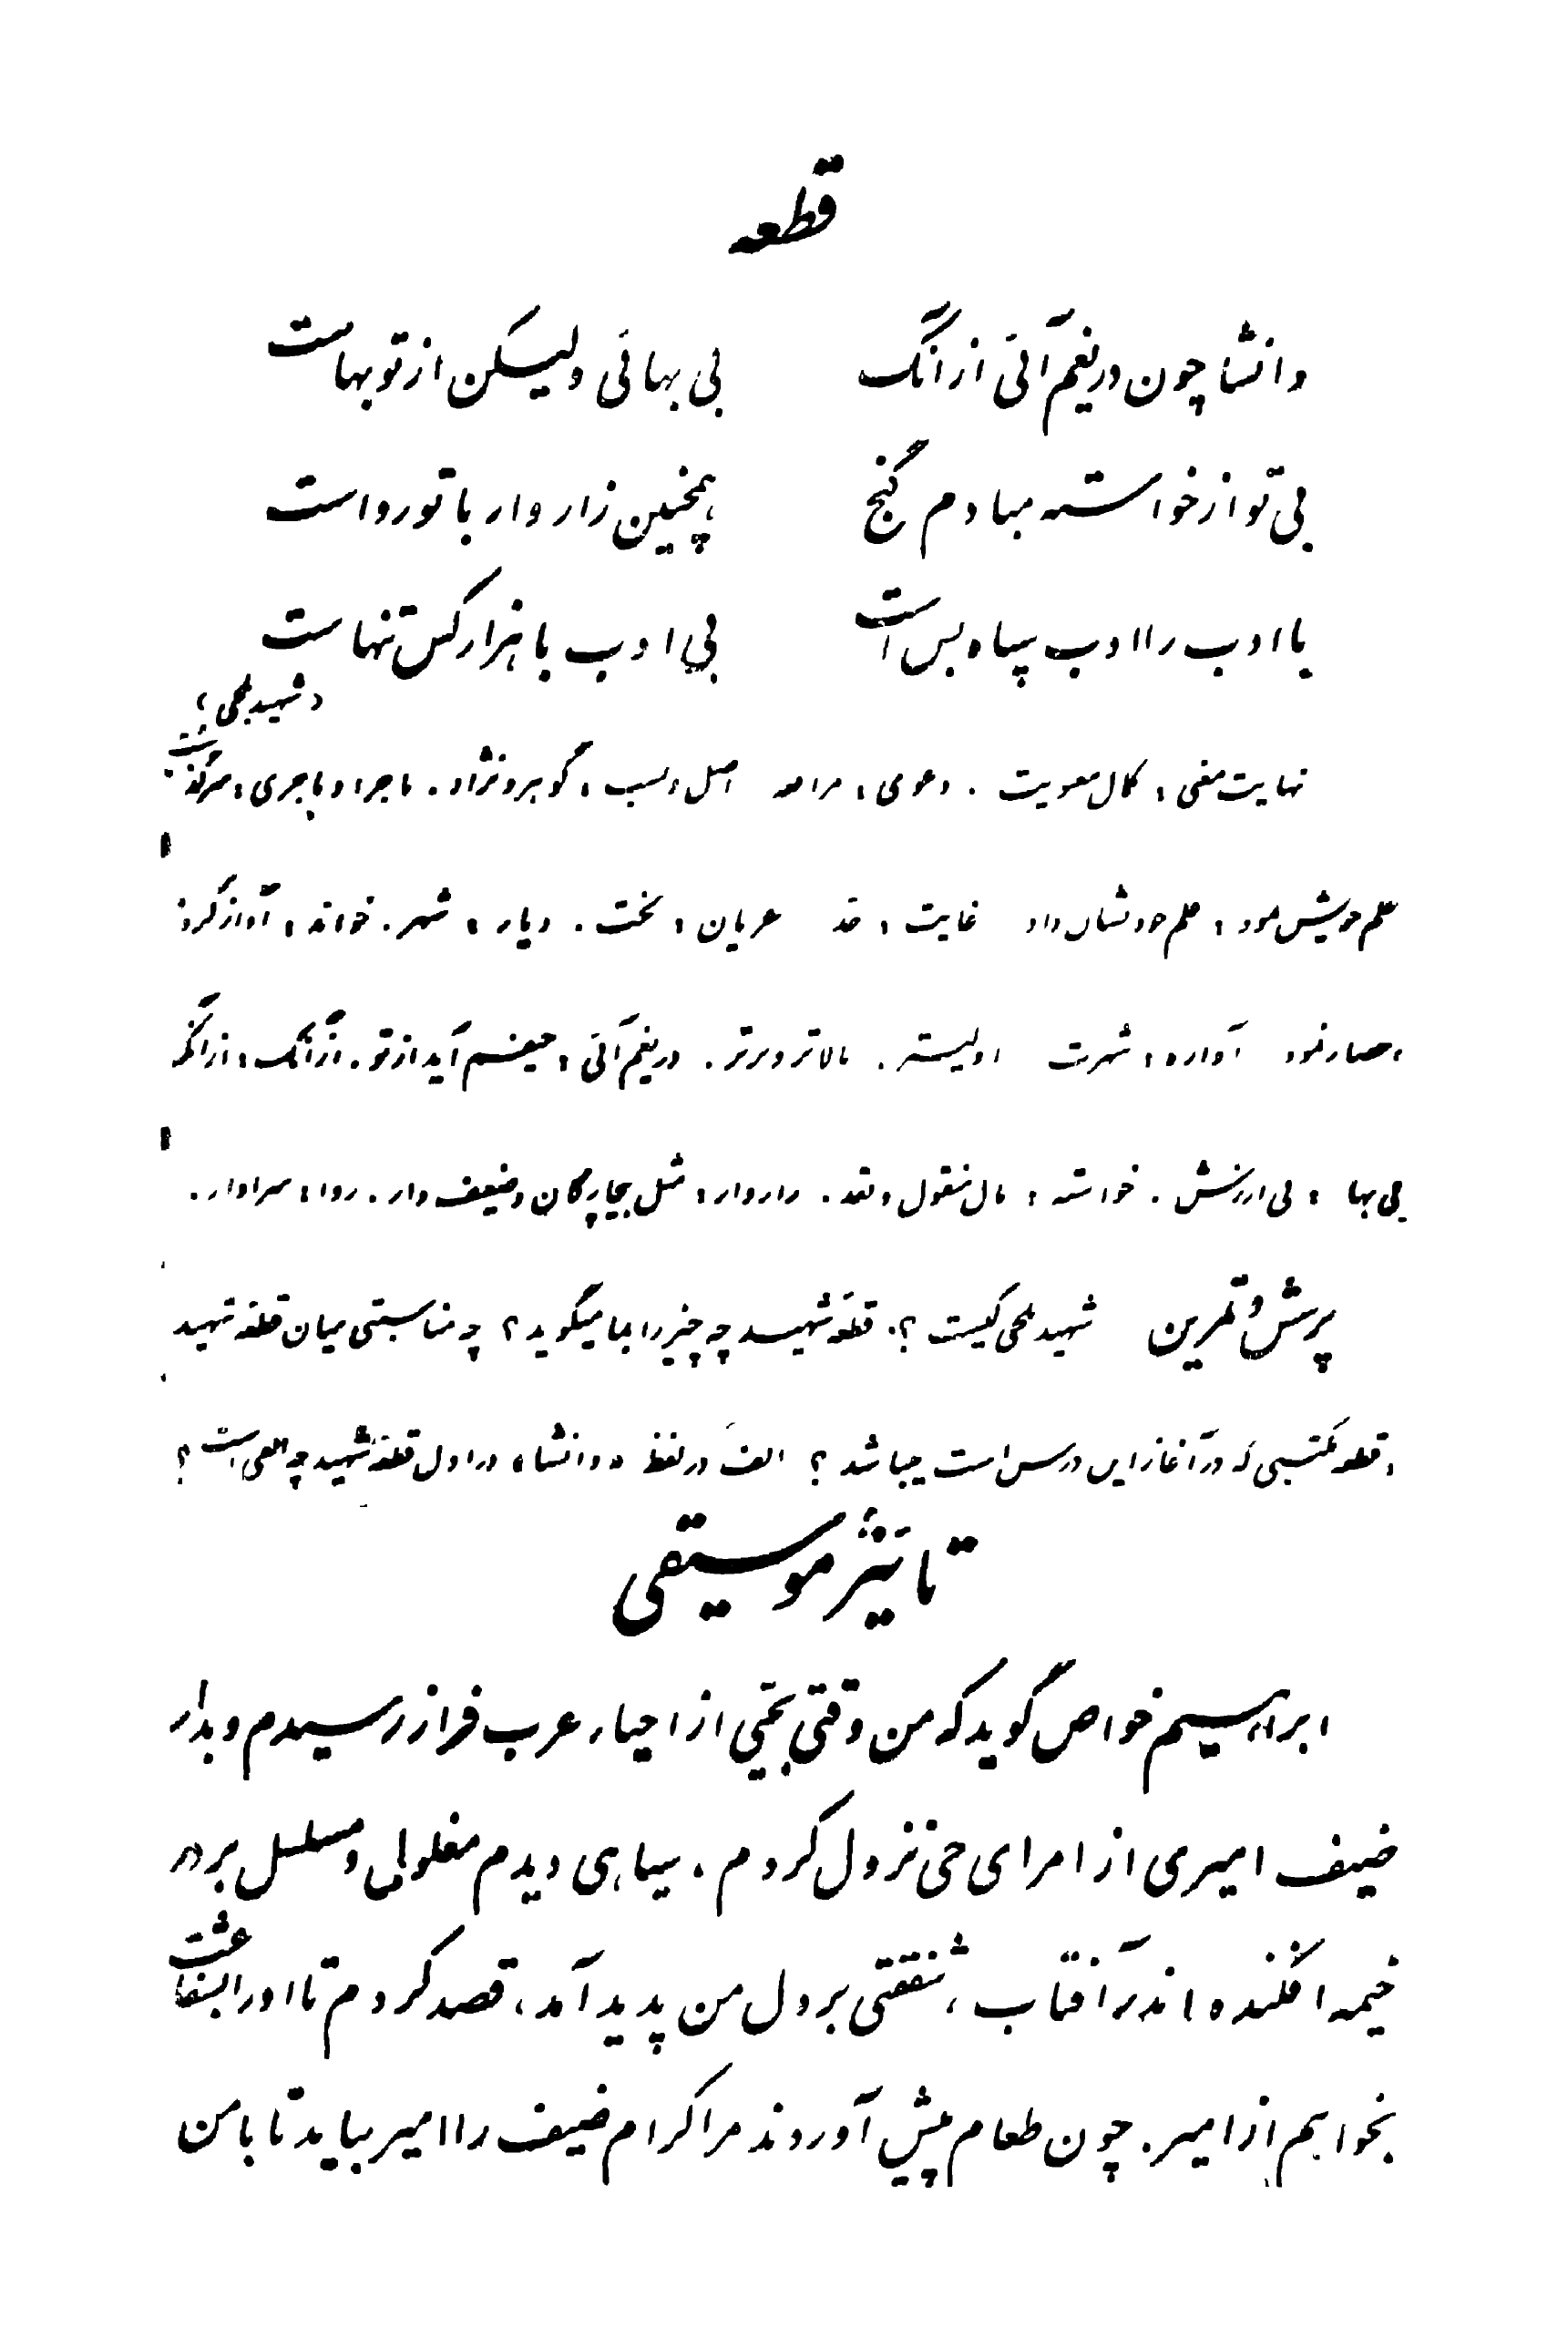 قطعه
دانشا چون دریغم آئی ازآنک بی بهائی ولیکن از تو بهاست
بی تو از خواسته مبادم گنج همچنین زاروار با تو رواست
با ادب را ادب سپاه بس است بی ادب با هزار کس تنهاست
(شهید بلخی)
نهایت معنی : کمال معنویت . دعوی : اصل و نسب : گوهر و نژاد . ماجرا و ماجری : سرگذشت .
علم خویش نمود : علم خود نشان داد غایت : حد عریان : لخت . دیار : شهر . خواند : آواز کرد :
احضار نمود آوازه : شهرت اولیتر . بالاتر و برتر . دریغم آئی : حیفم آید از تو . ازآنک : از آنکه
بی بها : بی ارزش . خواسته : مال منقول و نقد . زاروار : مثل بیچارگان و ضعیف وار . روا : سزاوار .
پرسش و تمرین شهید بلخی کیست ؟ . قطعهٔ شهید چه چیز را بما میگوید ؟ چه مناسبتی میان قطعه شهید
و قطعه مکتبی که در آغاز این درس است میباشد ؟ الف در لفظ «دانشا» در اول قطعهٔ شهید چه الفی است ؟
تأثیر موسیقی
ابراهیم خواص گوید که من وقتی بحیی از احیاء عرب فراز رسیدم و بدار
ضیف امیری از امرای حی نزول کردم ، سیاهی دیدم مغلول و مسلسل بر در
خیمه افکنده اندر آفتاب ، شفقتی بر دل من پدید آمد ، قصد کردم تا او را بشفاعت
بخواهم از امیر . چون طعام پیش آوردند مر اکرام ضیف را امیر بیاید تا با من